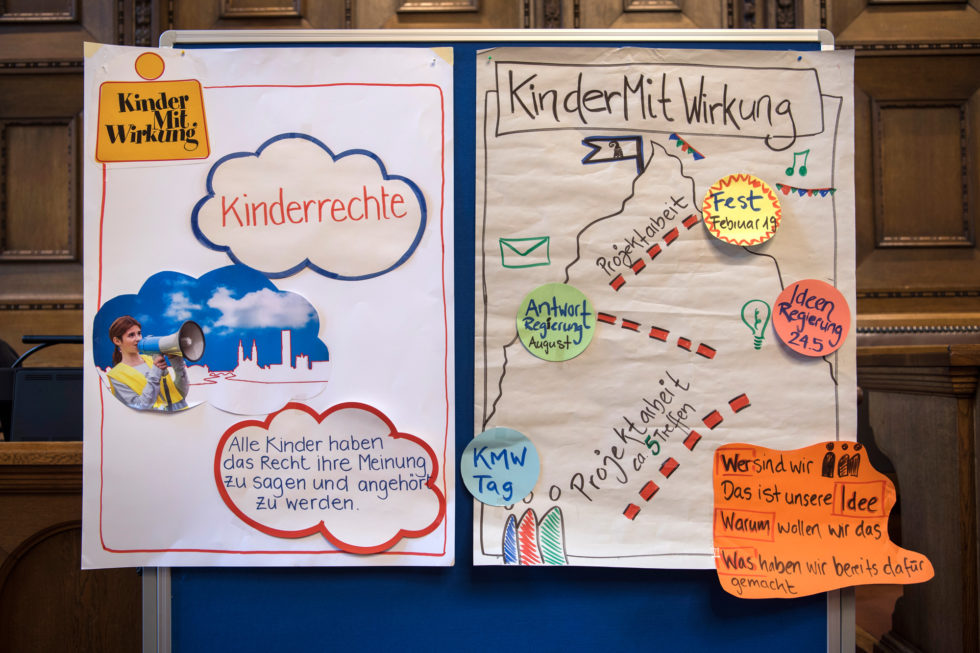 Kinder
Mit
Wirkung
Kinderrechte
Alle Kinder haben
das Recht ihre Meinung
zu sagen und angehört
zu werden.
KinderMitWirkung
Fest
Februar 19
Projektarbeit
Ideen
Regierung
24.5
Antwort
Regierung
August
Projektarbeit
ca. 5 Treffen
KMW
Tag
Wer sind wir
Das ist unsere Idee
Warum wollen wir das
Was haben wir bereits dafür
gemacht